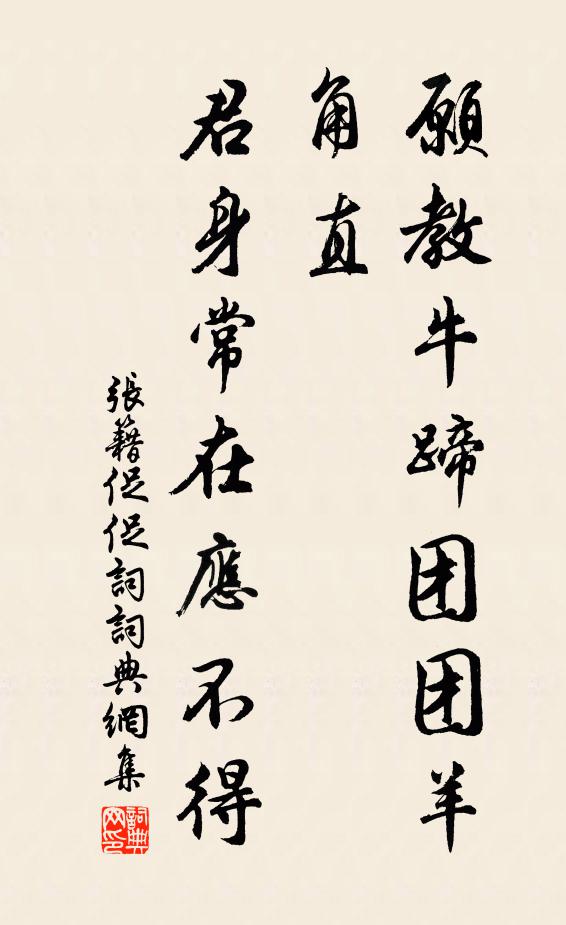 願教牛蹄团团羊
角直
君身常在應不得
張籍促促詞詞典網集
詞典网印